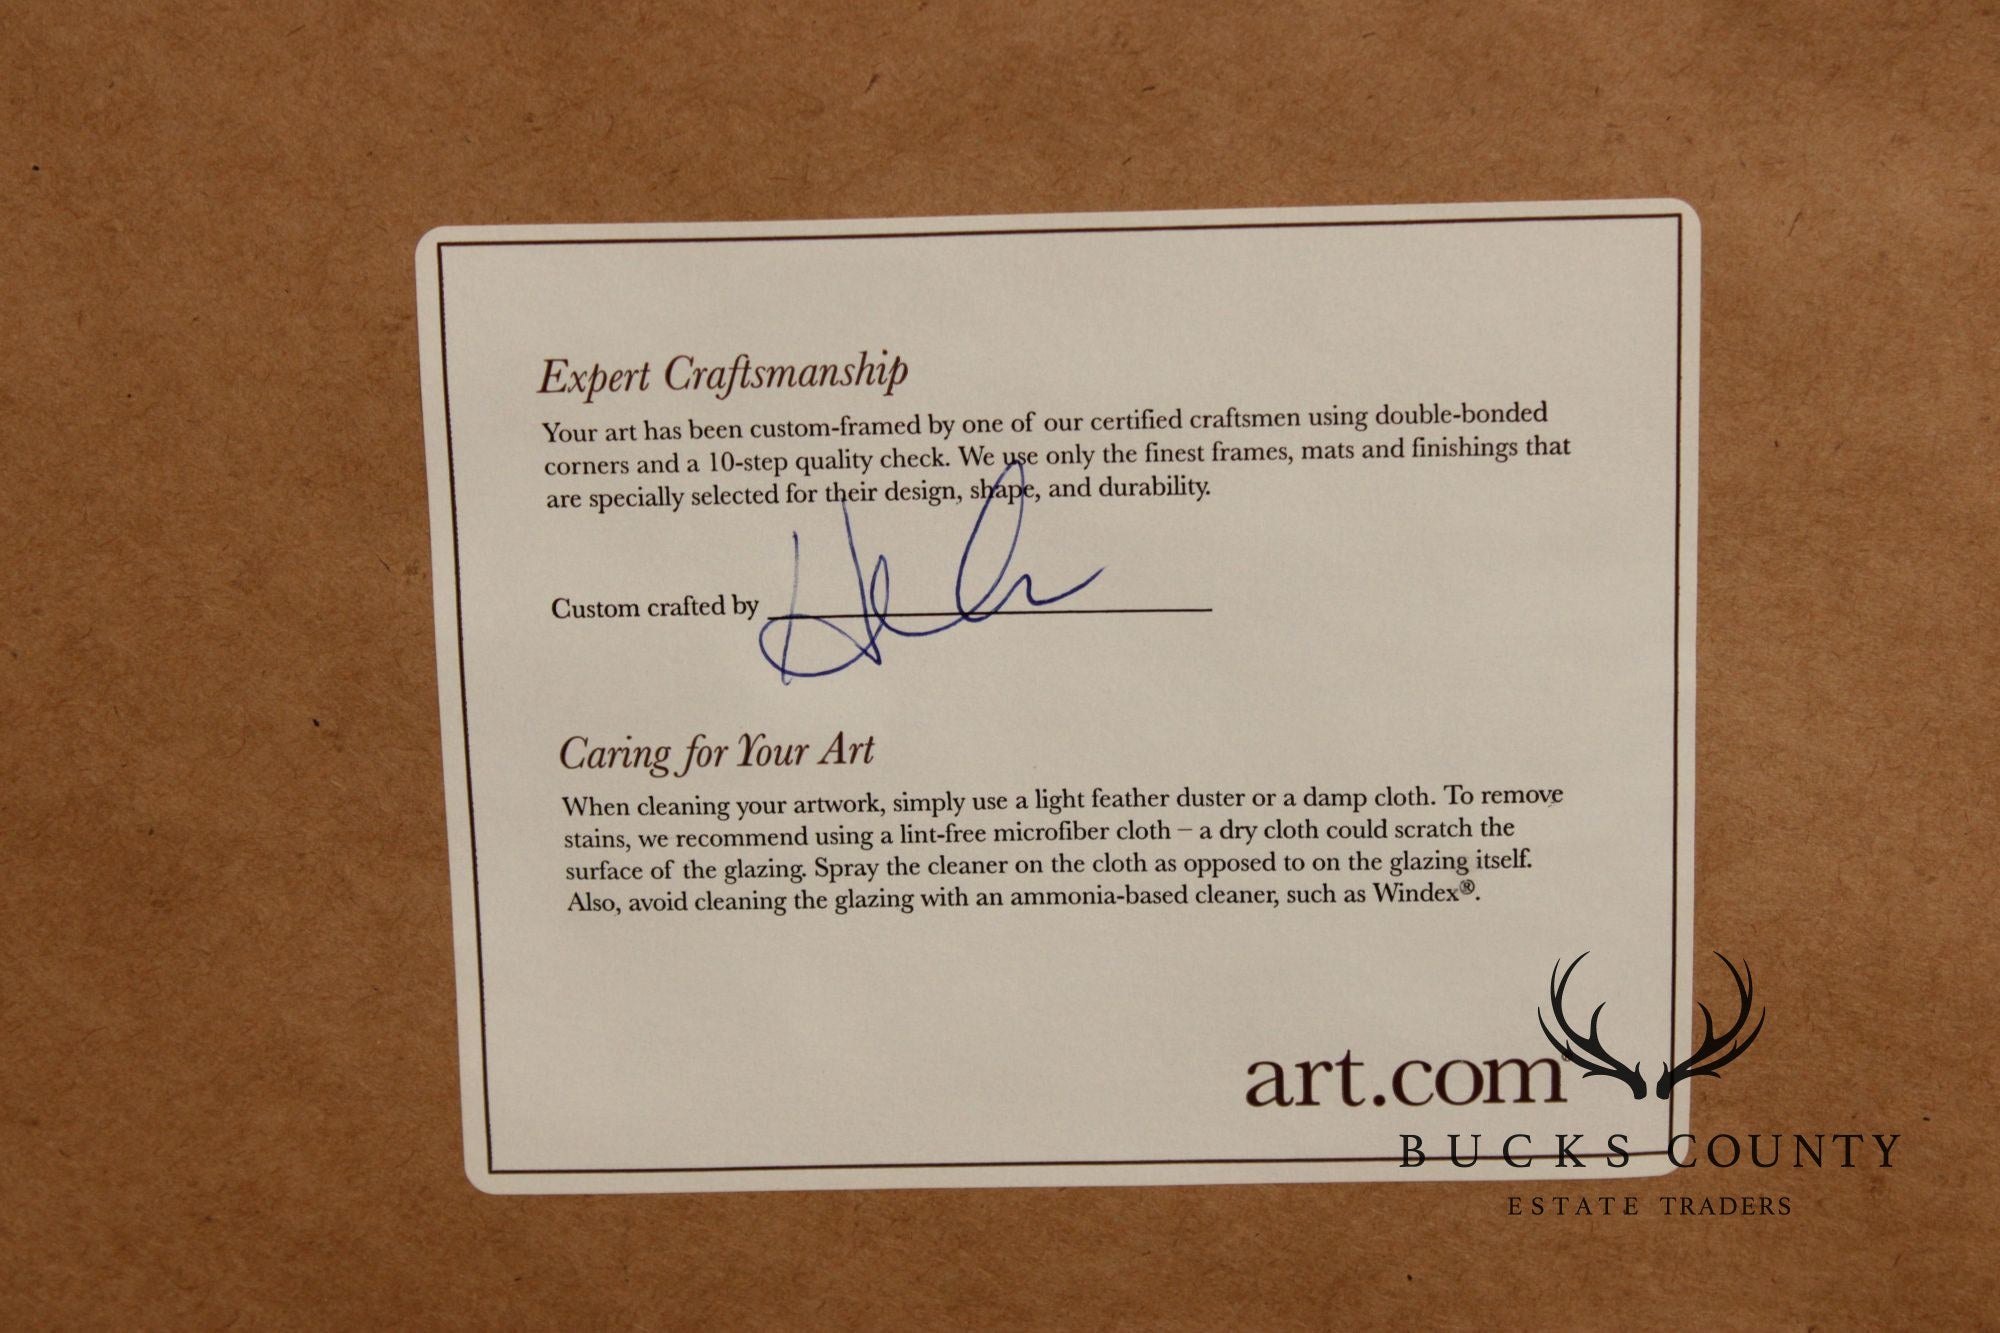 Expert Craftsmanship
Your art has been custom-framed by one of our certified craftsmen using double-bonded
corners and a 10-step quality check. We use only the finest frames, mats and finishings that
are specially selected for their design, shape, and durability.
Custom crafted by
Caring for Your Art
When cleaning your artwork, simply use a light feather duster or a damp cloth. To remove
stains, we recommend using a lint-free microfiber cloth – a dry cloth could scratch the
surface of the glazing. Spray the cleaner on the cloth as opposed to on the glazing itself.
Also, avoid cleaning the glazing with an ammonia-based cleaner, such as Windex®.
art.com®
BUCKS COUNTY
ESTATE TRADERS